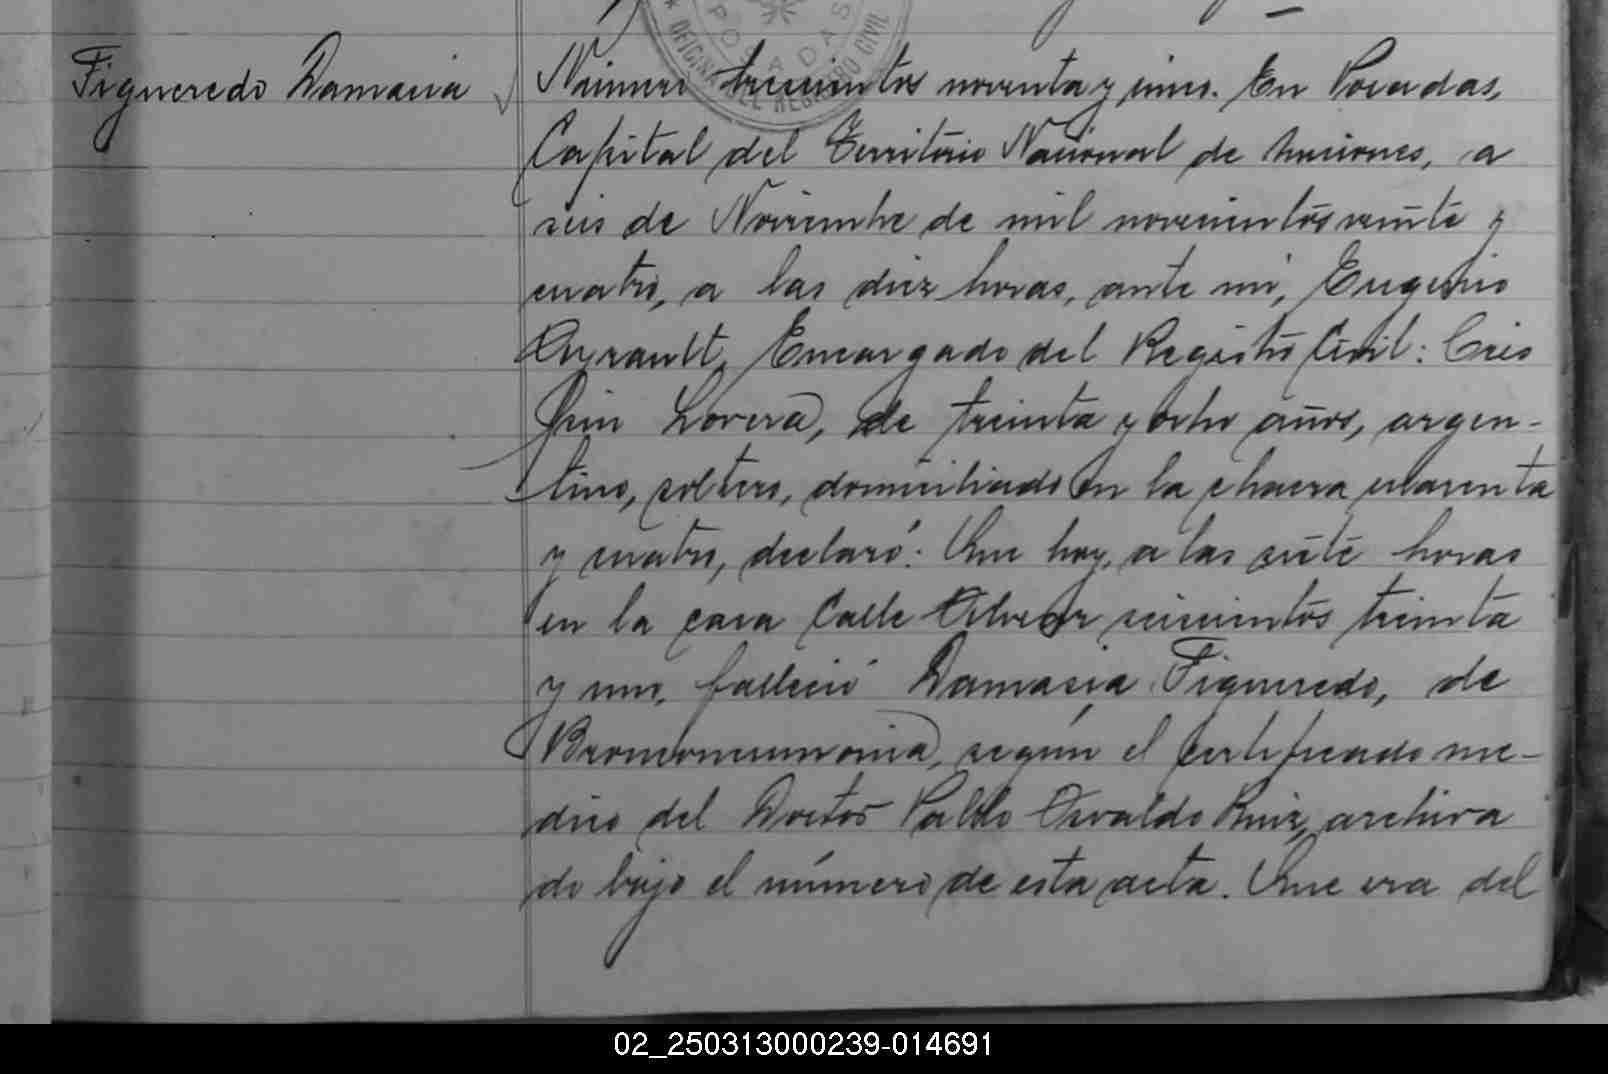 Figueredo Damasia
Número trescientos noventa y cinco. En Posadas,
Capital del Territorio Nacional de Misiones, a
seis de Noviembre de mil novecientos veinte y
cuatro, a las diez horas, ante mi, Eugenio
Encargado del Registro Civil: Cris
pin Lovera, de treinta y ocho años, argen-
tino, soltero, domiciliado en la chacra cuarenta
y cuatro, declaró: Que hoy, a las siete horas
en la casa Calle Alvear seiscientos treinta
y uno, falleció Damasia Figueredo, de
Bronconeumonia, según el certificado me-
dico del Doctor Pablo Osvaldo Ruiz, archiva
do bajo el número de esta acta. Que era del
POSADAS
OFICINA DEL REGISTRO CIVIL
02_250313000239-014691